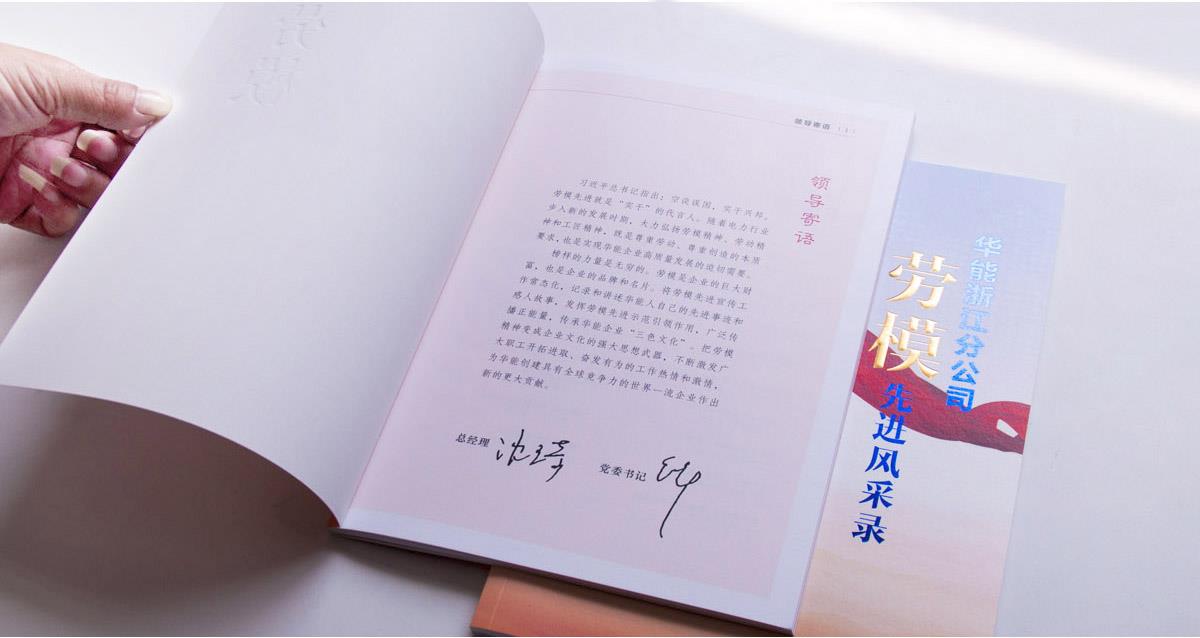 领导寄语 | 1 |
领导寄语
习近平总书记指出:空谈误国,实干兴邦。
劳模先进就是“实干”的代言人。随着电力行业
步入新的发展时期,大力弘扬劳模精神、劳动精
神和工匠精神,既是尊重劳动、尊重创造的本质
要求,也是实现华能企业高质量发展的迫切需要。
榜样的力量是无穷的。劳模是企业的巨大财
富,也是企业的品牌和名片。将劳模先进宣传工
作常态化,记录和讲述华能人自己的先进事迹和
感人故事,发挥劳模先进示范引领作用,广泛传
播正能量,传承华能企业“三色文化”。把劳模
精神变成企业文化的强大思想武器,不断激发广
大职工开拓进取、奋发有为的工作热情和激情,
为华能创建具有全球竞争力的世界一流企业作出
新的更大贡献。
总经理
党委书记
华能浙江分公司
劳模
先进风采录